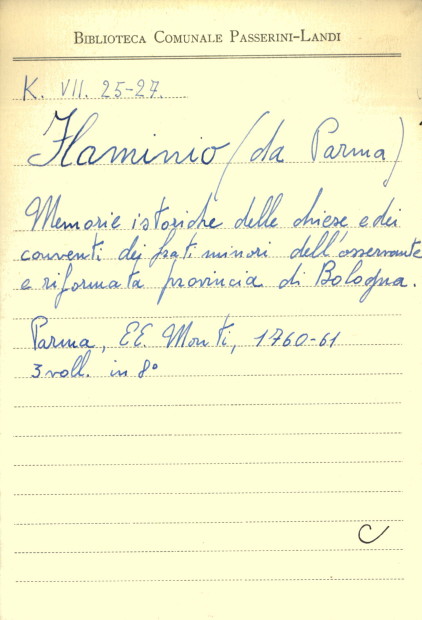 BIBLIOTECA COMUNALE PASSERINI-LANDI
K. VII. 25-27.
Flaminio (da Parma)
Memorie istoriche delle chiese e dei
conventi dei frati minori dell'osservante
e riformata provincia di Bologna.
Parma, EE. Monti, 1760-61
3 voll. in 8°
C